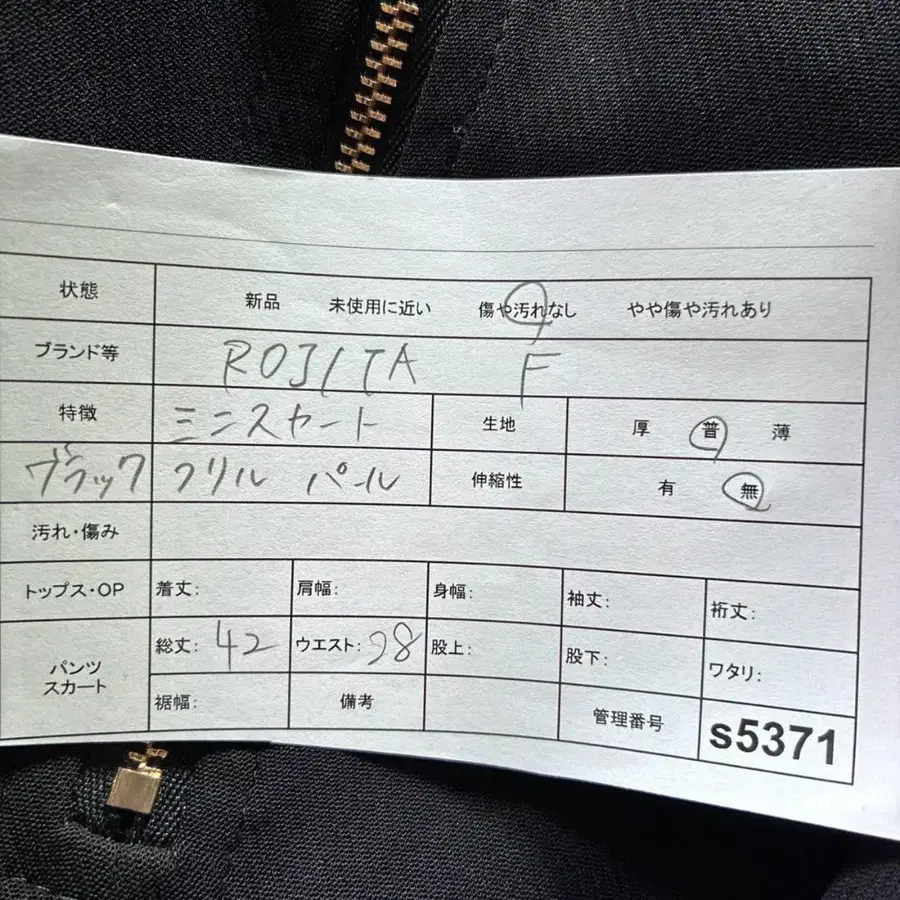 状態 新品 未使用に近い 傷や汚れなし やや傷や汚れあり
ブランド等 ROJITA F
特徴 ミニスカート 生地 厚 普 薄
ブラック フリル パール 伸縮性 有 無
汚れ・傷み
トップス・OP 着丈: 肩幅: 身幅: 袖丈: 裄丈:
パンツ スカート 総丈: 42 ウエスト: 28 股上: 股下: ワタリ:
裾幅: 備考 管理番号 s5371